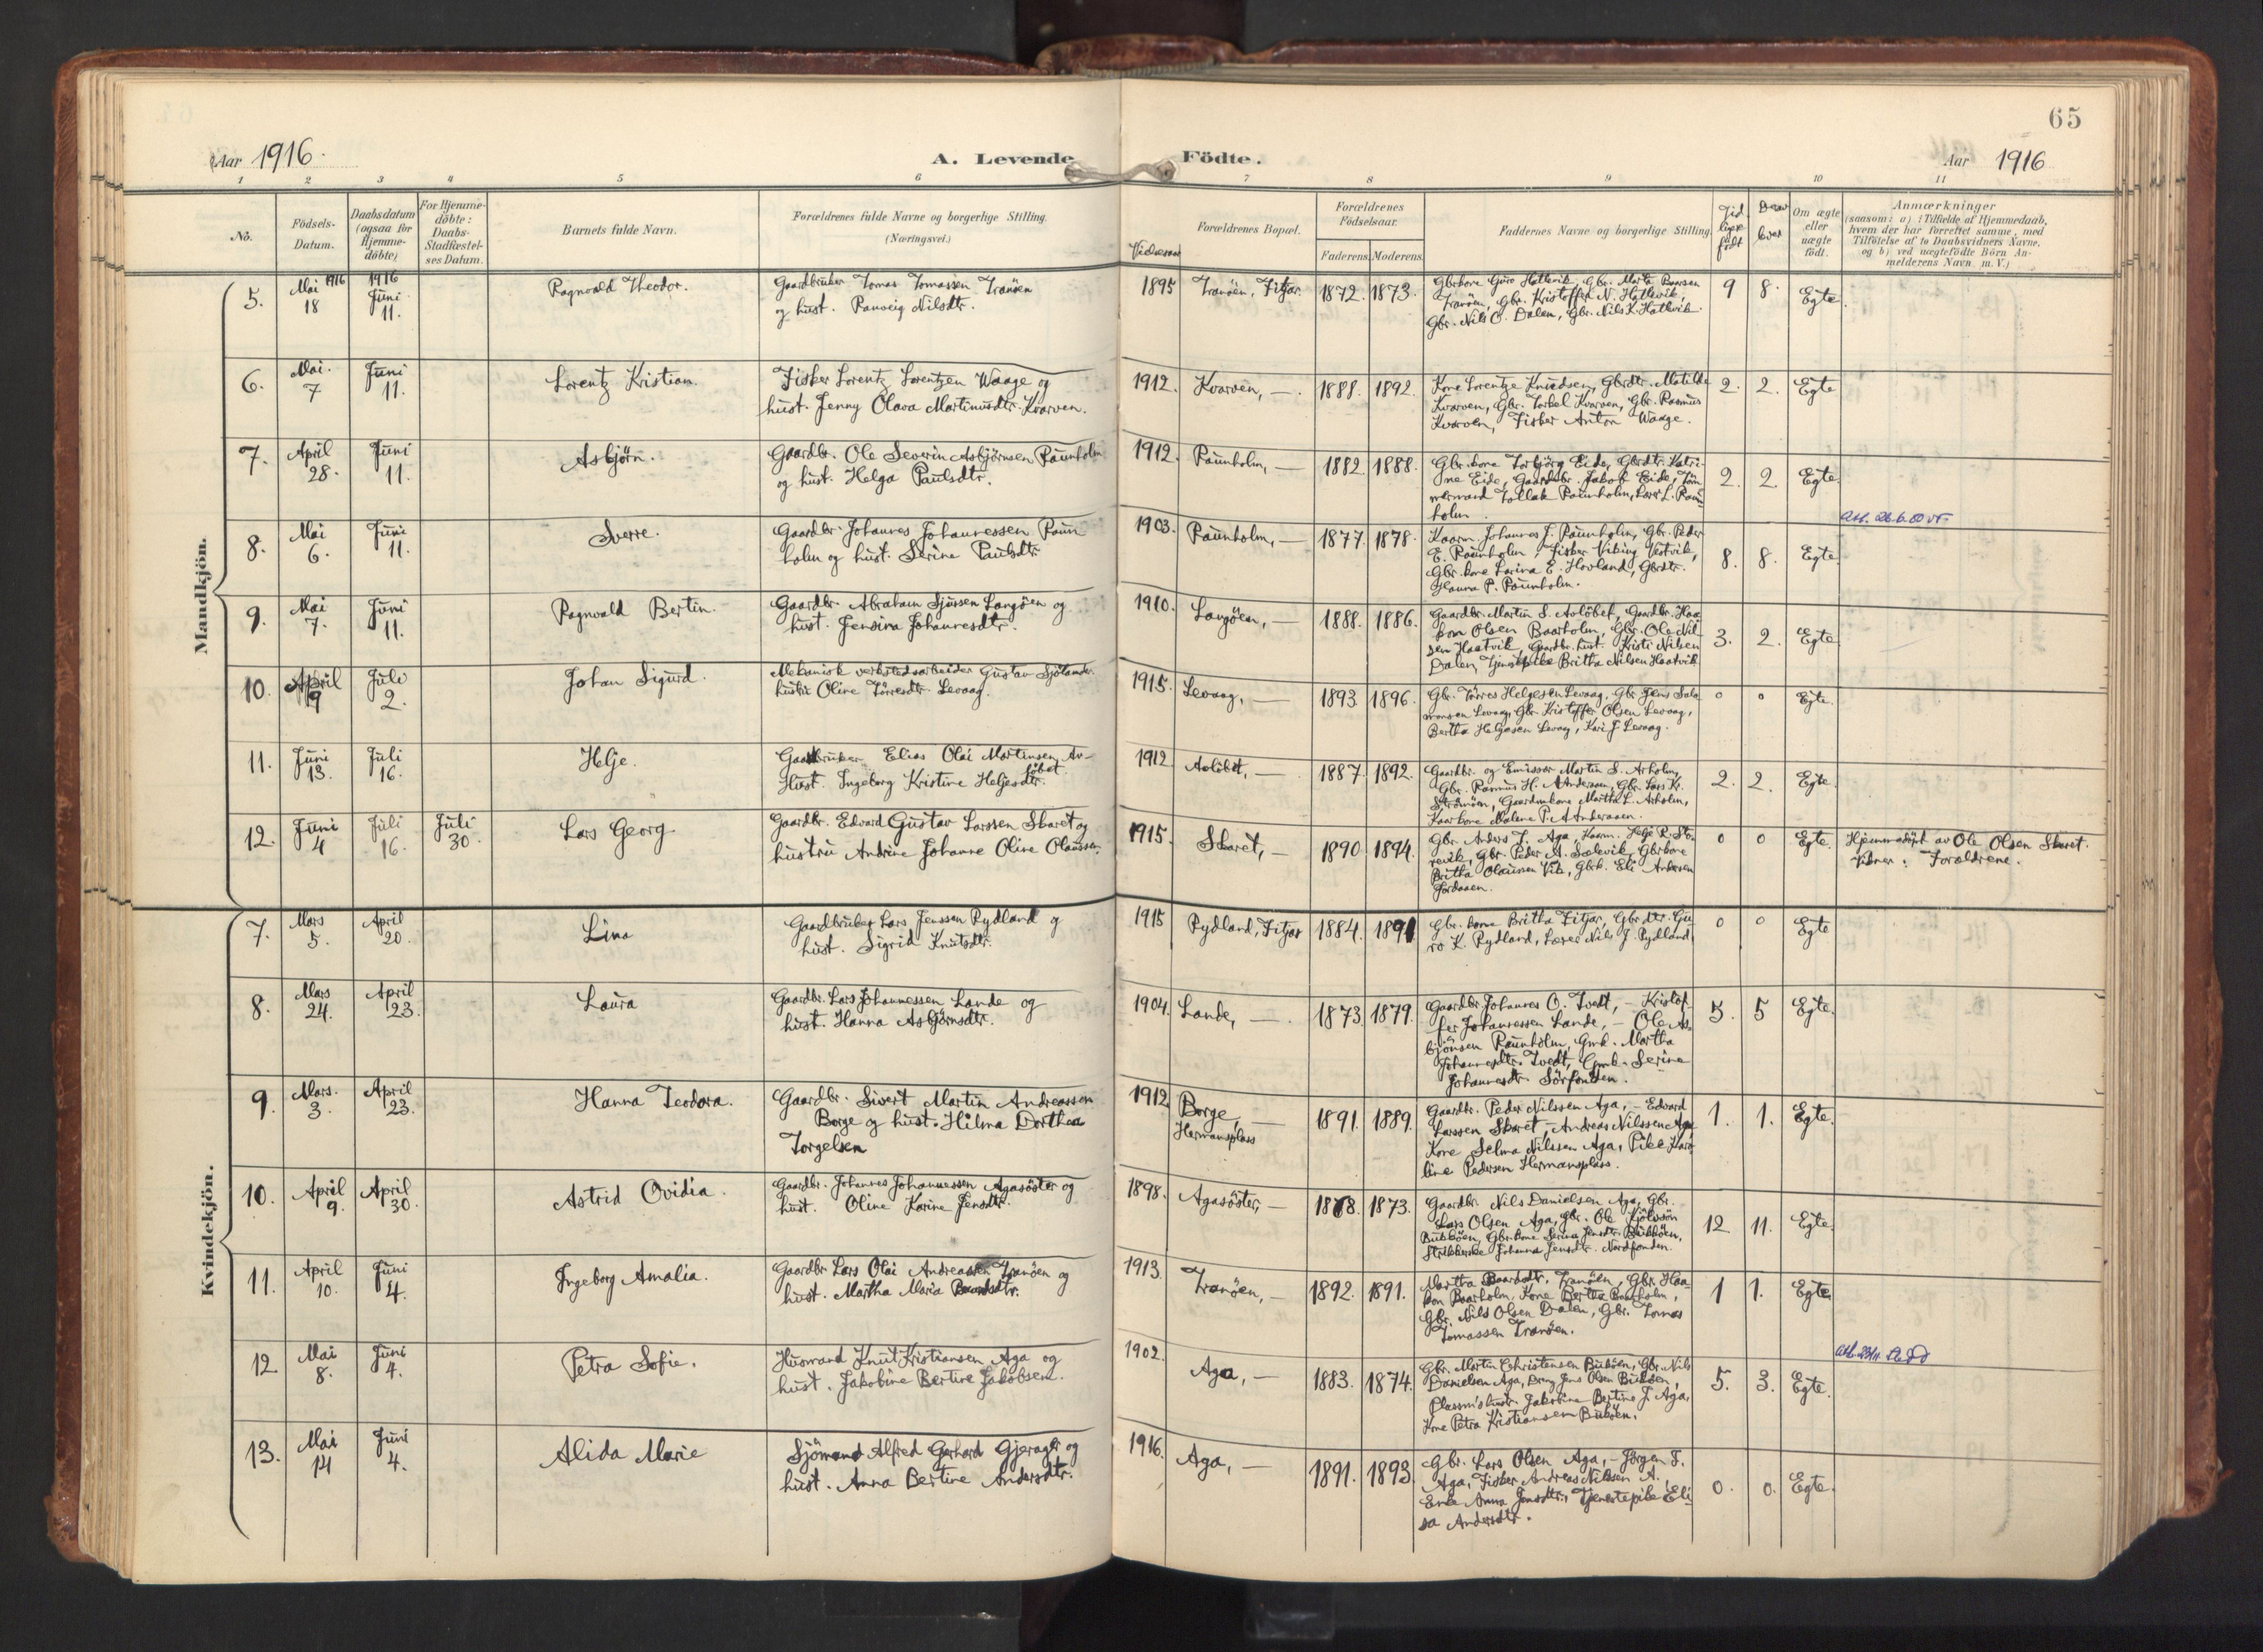 65
Aar 1916.
A. Levende Födte.
Aar 1916
1 2 3 4 5 6 7 8 9 10 11
No.
Födsels-
Datum.
Daabsdatum
(ogsaa for
Hjemme-
döbte)
For Hjemme-
döbte:
Daabs-
Stadfæstel-
ses Datum.
Barnets fulde Navn.
Forældrenes fulde Navne og borgerlige Stilling.
(Næringsvei.)
Forældrenes Bopæl.
Forældrenes
Födselsaar.
Faderens. Moderens.
Faddernes Navne og borgerlige Stilling.
Tid
ligere
født
Om ægte
eller
uægte
födt.
Anmærkninger
(saasom: a) i Tilfælde af Hjemmedaab,
hvem der har forrettet samme, med
Tilföielse af to Daabsvidners Navne,
og b) ved uægtefödte Börn An-
melderens Navn m. V.)
Mandkjön.
5.
Mai 1916
18
1916
Juni
11.
Ragnvald Theodor.
Gaardbruker Tomas Tomassen Tranöen
og hust. Ranveig Nilsdtr.
1895
Tranöen, Fitjar.
1872. 1873.
Gbrkone Guro Hatlevik, Gbr. Marta Baarsen
Tranöen, Gbr. Kristoffer N. Hatlevik,
Gbr. Nils O. Dalen, Gbr. Nils K. Hatlevik.
9 8.
Egte.
6.
Mai.
7
Juni
11.
Lorentz Kristian.
Fisker Lorentz Lorentzen Waage og
hust. Jenny Olava Martinusdtr. Kvarven.
1912.
Kvarven, —.
1888. 1892.
Kone Lorentze Knudsen, Gbrdtr. Matilde
Kvarven, Gbr. Torkel Kvarven, Gbr. Rasmus
Kvarven, Fisker Anton Waage.
2. 2.
Egte
7.
April
28.
Juni
11.
Asbjörn.
Gaardbr. Ole Severin Asbjörnsen Raunholm
og hust. Helga Paulsdtr.
1912.
Raunholm, —
1882. 1888.
Gbr.kone Torbjörg Eide, Gbrdtr. Katri-
ne Eide, Gaardbr. Jakob Eide, Töm
mermand Tollak Raunholm, Lars L. Raun
holm.
2. 2.
Egte.
8.
Mai
6.
Juni
11.
Sverre.
Gaardbr. Johannes Johannessen Raun
holm og hust. Serine Paulsdtr
1903.
Raunholm, —
1877. 1878.
Kaarm Johannes J. Raunholm, Gbr. Peder
E. Raunholm, Fisker Viking Vestvik,
Gbr. kone Larina E. Hovland, Gbrdtr.
Haura P. Raunholm.
8. 8.
Egte.
9.
Mai
7.
Juni
11.
Ragnvald Bertin.
Gaardbr. Abraham Sjursen Langöen og
hust. Jensina Johannesdtr.
1910.
Langöen, —
1888. 1886.
Gaardbr. Martin S. Avlöbet, Gaardbr. Haa
kon Olsen Baarholm, Gbr. Ole Nil-
sen Haatvik, Gaardbr. hust. Kristi Nilsen
Dalen, Tjenestpike Britha Nilsen Haatvik
3. 2.
Egte
10.
April
19
Juli
2.
Johan Sigurd.
Mekanisk verkstedsarbeider Gustav Sjölander
hustru Oline Törresdtr. Levaag.
1915.
Levaag, —
1893. 1896.
Gbr. Törres Helgesen Levaag, Gbr. Jens Salo
monsen Levaag, Gbr. Kristoffer Olsen Levaag,
Bertha Helgesen Levaag, Kari J. Levaag.
0 0
Egte.
11.
Juni
13.
Juli
16.
Helje.
Gaardbruker Elias Olai Martinsen Av-
löbet.
Hust. Ingeborg Kristine Heljesdtr.
1912
Avlöbet, —
1887. 1892.
Gaardbr. og Emissær Martin S. Arholm,
Gbr. Rasmus H. Andersen, Gbr. Lars K.
Strömöen, Gaardmkone Martha L. Arholm,
Kaarkone Malene P. Andersaen.
2. 2.
Egte.
12.
Juni
4
Juli
16.
Juli
30.
Lars Georg
Gaardbr. Edvard Gustav Larssen Skaret og
hustru Andrine Johanne Oline Olaussen.
1915.
Skaret, —
1890. 1894.
Gbr. Anders J. Aga, Kaarm. Helje R. Sto-
revik, Gbr. Peder A. Sælevik, Gbrkone
Britha Olaussen Vik, Gbrk. Eli Andersen
Gordaaen.
0 0
Egte.
Hjemmedöpt av Ole Olsen Skaret.
Vidner: Forældrene.
Kvindekjön.
7.
Mars
5.
April
20.
Lina
Gaardbruker Lars Jenssen Rydland og
hust. Sigrid Knutsdtr.
1915
Rydland, Fitjar
1884. 1891
Gbr. kone Britha Fitjar, Gbr.dtr. Gu
ro K. Rydland, Lærer Nils J. Rydland.
0 0
Egte
8.
Mars
24.
April
23.
Laura
Gaardbr. Lars Johannessen Lande og
hust. Hanna Asbjörnsdtr.
1904.
Lande, —.
1873. 1879.
Gaardbr. Johannes O. Tvedt, — Kristof-
fer Johannessen Lande, — Ole As
björnsen Raunholm, Gmk. Martha
Johannesdtr. Tvedt, Gmk. Serine
Johannesdtr Sörfonden.
5. 5
Egte.
9.
Mars.
3.
April
23.
Hanna Teodora.
Gaardbr. Sivert Martin Andreassen
Borge og hust. Hilma Dorthea
Torgelsen
1912
Borge, —
Hermansplass
1891. 1889.
Gaardbr. Peder Nilssen Aga, — Edvard
Larssen Skaret, — Andreas Nilssen Aga
Kone Selma Nilssen Aga, Pike Karo
line Pedersen Hermansplass.
1. 1.
Egte.
10.
April
9.
April
30.
Astrid Ovidia.
Gaardbr. Johannes Johannessen Agasöster og
hust. Oline Karine Jensdtr.
1898.
Agasöster, —
1873.
Gaardbr. Nils Danielsen Aga, Gbr.
Lars Olsen Aga, Gbr. Ole Kjölvsön
Buköen, Gbr.kone Serina Jensdtr. Buköen,
Strikkerske Johanna Jensdtr. Nordfonden.
12 11.
Egte.
11.
April
10.
Juni
4.
Ingeborg Amalia.
Gaardbr. Lars Olai Andreassen Tranöen og
hust. Martha Maria Baardsdtr.
1913.
Tranöen, —
1892. 1891.
Martha Baardsdtr. Tranöen, Gbr. Haa-
kon Baarholm, Kone Bertha Baarholm,
Gbr. Nils Olsen Dalen, Gbr. Tomas
Tomassen Tranöen.
1 1.
Egte.
12.
Mai
8.
Juni
4.
Petra Sofie.
Husmand Knut Kristiansen Aga og
hust. Jakobine Bertine Jakobsen.
1902.
Aga, —
1883. 1874.
Gbr. Martin Christensen Buköen, Gbr. Nils
Danielsen Aga, Jens Olsen Buköen,
Plassm's hustr. Jakobine Bertine J. Aga,
Kone Petra Kristiansen Buköen.
5. 3.
Egte.
13.
Mai
14
Juni
4.
Alida Marie
Sjömand Alfred Gerhard Gjerager og
hust. Anna Bertine Andersdtr.
1916.
Aga, —
1891. 1893.
Gbr. Lars Olsen Aga, — Jörgen J.
Aga, Fisker Andreas Nilssen A.,
Enke Anna Jensdtr., Tjenestepike Eli
sa Andersdtr.
0. 0.
Egte.